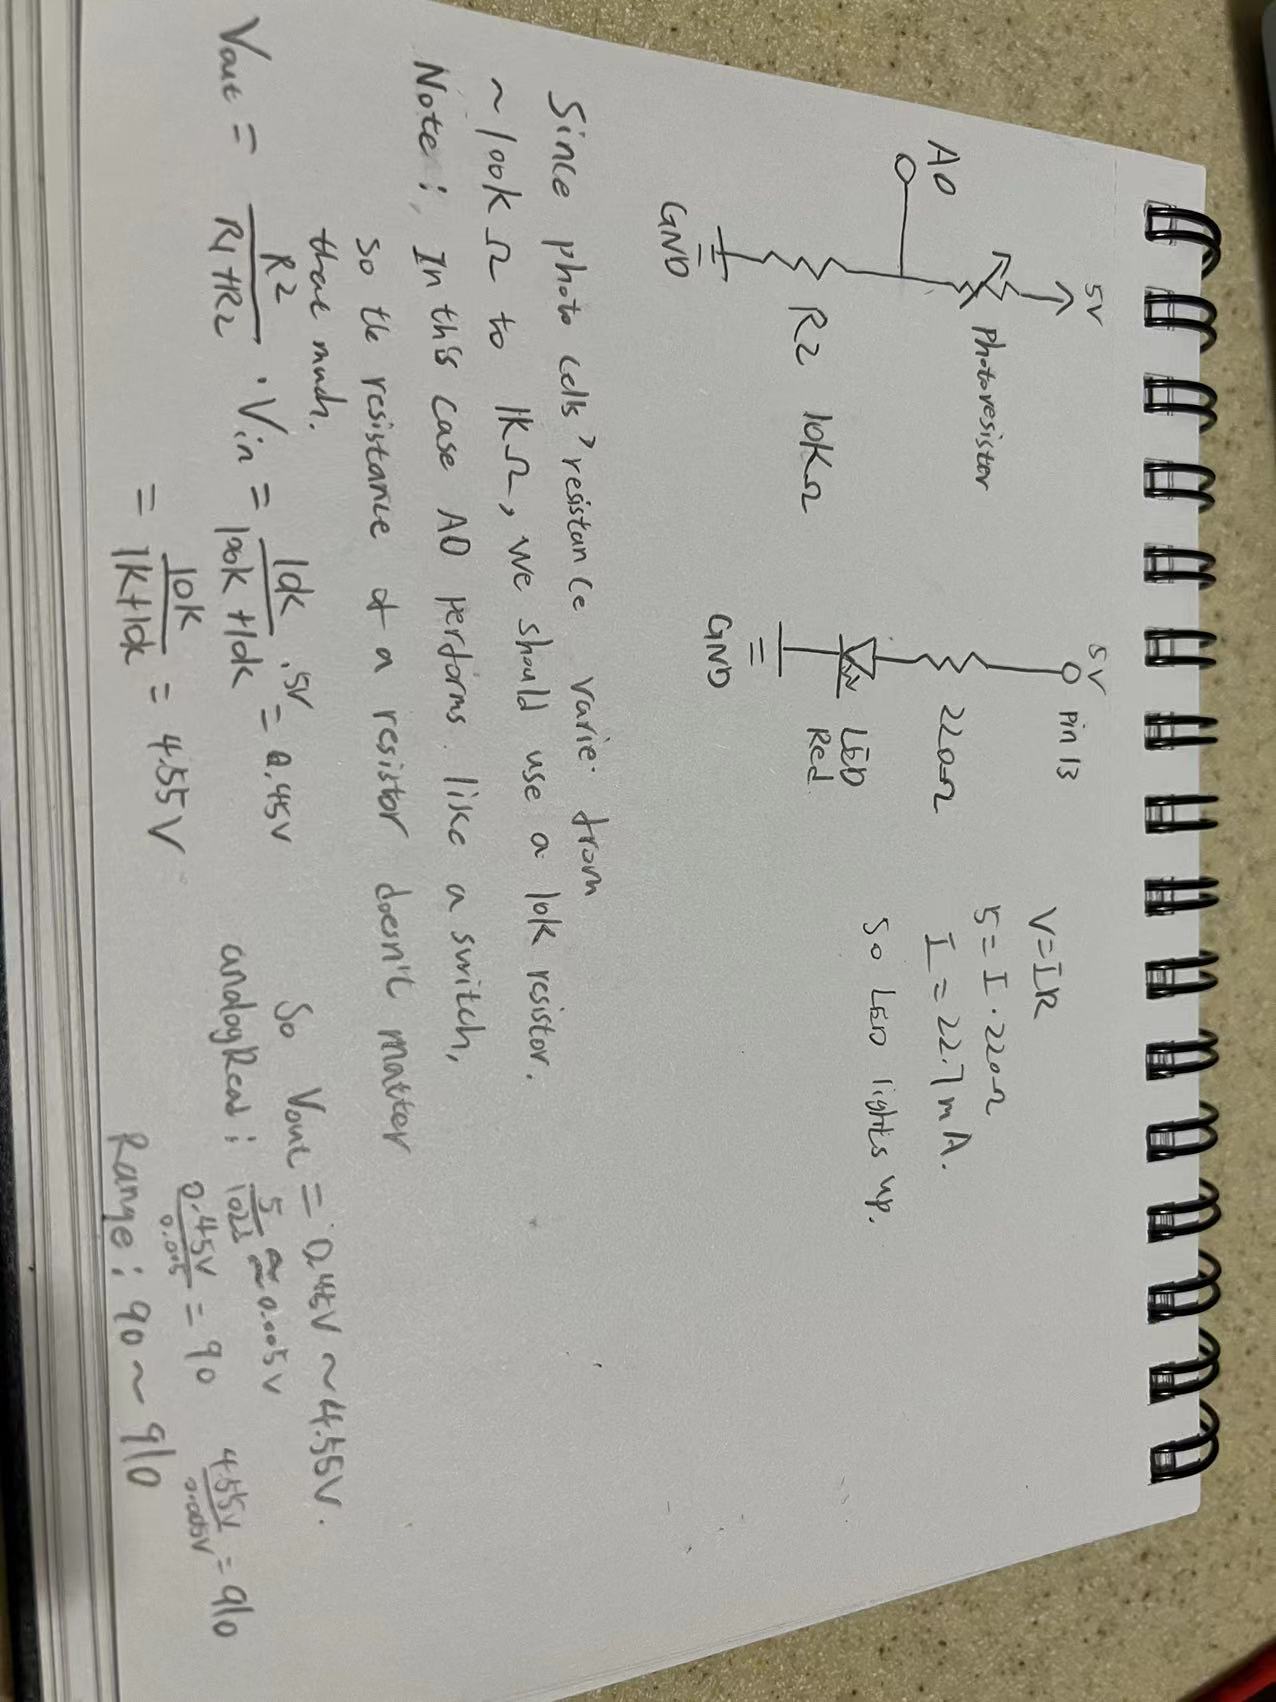 5V
Photoresister
A0
R2 10KΩ
GND
5V
Pin 13
220Ω
LED
Red.
GND
V=IR
5=I·220Ω
I=22.7mA.
So LED lights up.
Since photo cells' resistance varie from
~100KΩ to 1KΩ, we should use a 10k resistor.
Note: In this case A0 performs like a switch,
so the resistance of a resistor doesn't matter
that much.
Vout = R2/(R1+R2) · Vin = 10k/(100k+10k) · 5V = 0.45V
= 10k/(1k+10k) = 4.55V
So Vout = 0.45V ~ 4.55V.
analogRead: 5/1023 ≈ 0.005V
0.45V/0.005 = 90 4.55V/0.005V = 910
Range: 90 ~ 910